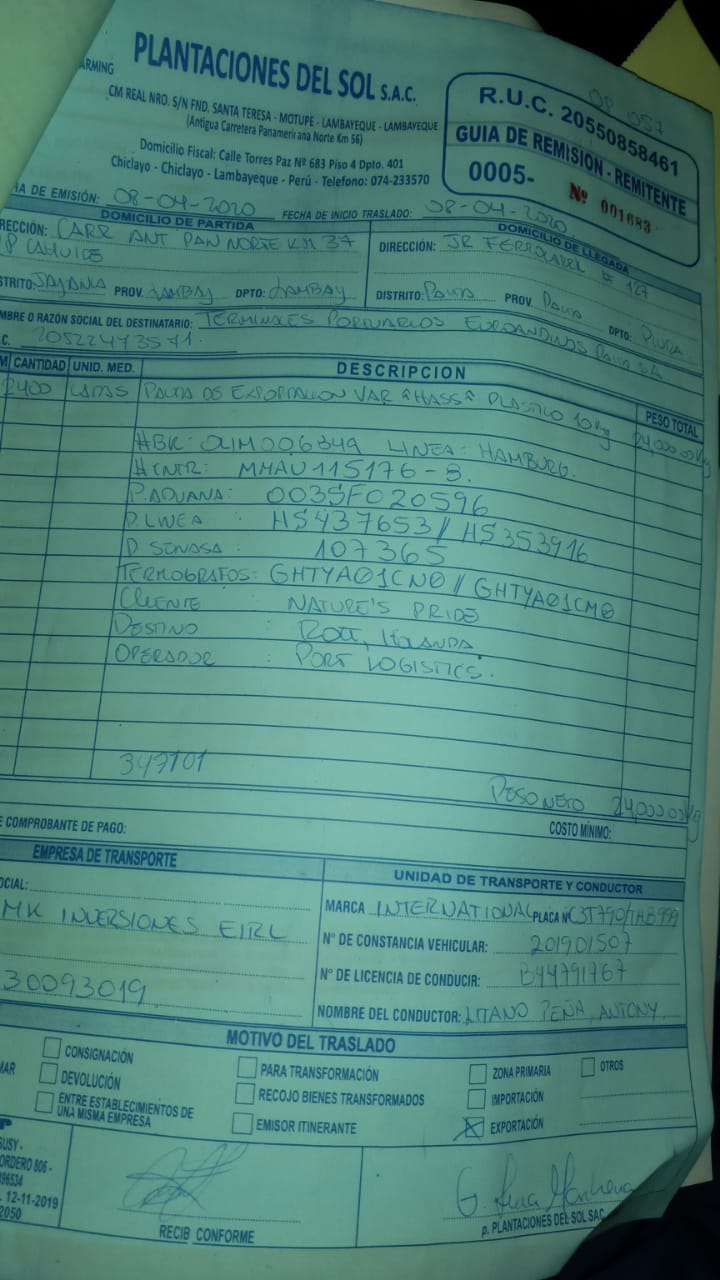 ARMING
PLANTACIONES DEL SOL S.A.C.
CM REAL NRO. S/N FND. SANTA TERESA - MOTUPE - LAMBAYEQUE - LAMBAYEQUE
(Antigua Carretera Panamericana Norte Km 56)
Domicilio Fiscal: Calle Torres Paz Nº 683 Piso 4 Dpto. 401
Chiclayo - Chiclayo - Lambayeque - Perú - Telefono: 074-233570
OP 057
R.U.C. 20550858461
GUIA DE REMISION - REMITENTE
0005- Nº 001683
HA DE EMISIÓN: 08-04-2020 FECHA DE INICIO TRASLADO: 08-04-2020
DOMICILIO DE PARTIDA
RECCIÓN: CARR ANT PAN NORTE KM 37
CAHUIDE
STRITO: JAYANCA PROV. LAMBAY DPTO: LAMBAY
DOMICILIO DE LLEGADA
DIRECCIÓN: JR FERROCARRIL # 127
DISTRITO: PAITA PROV. PAITA DPTO: PIURA
MBRE O RAZÓN SOCIAL DEL DESTINATARIO: TERMINALES PORTUARIOS EUROANDINOS PAITA S.A.
C. 20522473571.
M CANTIDAD UNID. MED. DESCRIPCION PESO TOTAL
2400 CAJAS PALTA DE EXPORTACION VAR "HASS" PLASTICO 10 Kg 24,000.00 Kg
#BK: OLIM006349 LINEA: HAMBURG.
#CNTR: MMAU115176-3.
P. ADUANA: 003SF020596
P. LINEA : HS437653 // HS353916
P SENASA : 107365
TERMOGRAFOS: GHTYA01CN0 // GHTYA01CM0
CLIENTE : NATURE'S PRIDE
DESTINO : ROTT, HOLANDA.
OPERADOR : PORT LOGISTICS.
347101
PESO NETO 24,000.00 Kg
E COMPROBANTE DE PAGO: COSTO MÍNIMO:
EMPRESA DE TRANSPORTE
OCIAL:
MK INVERSIONES EIRL
30093019
UNIDAD DE TRANSPORTE Y CONDUCTOR
MARCA INTERNATIONAL PLACA Nº C3T790/THB999
N° DE CONSTANCIA VEHICULAR: 201901507
N° DE LICENCIA DE CONDUCIR: B44791767
NOMBRE DEL CONDUCTOR: LITANO PEÑA, ANTONY
MOTIVO DEL TRASLADO
MAR
CONSIGNACIÓN
DEVOLUCIÓN
ENTRE ESTABLECIMIENTOS DE
UNA MISMA EMPRESA
PARA TRANSFORMACIÓN
RECOJO BIENES TRANSFORMADOS
EMISOR ITINERANTE
ZONA PRIMARIA
IMPORTACIÓN
X EXPORTACIÓN
OTROS
USY -
ORDERO 806 -
96534
. 12-11-2019
2050
RECIBÍ CONFORME
p. PLANTACIONES DEL SOL SAC